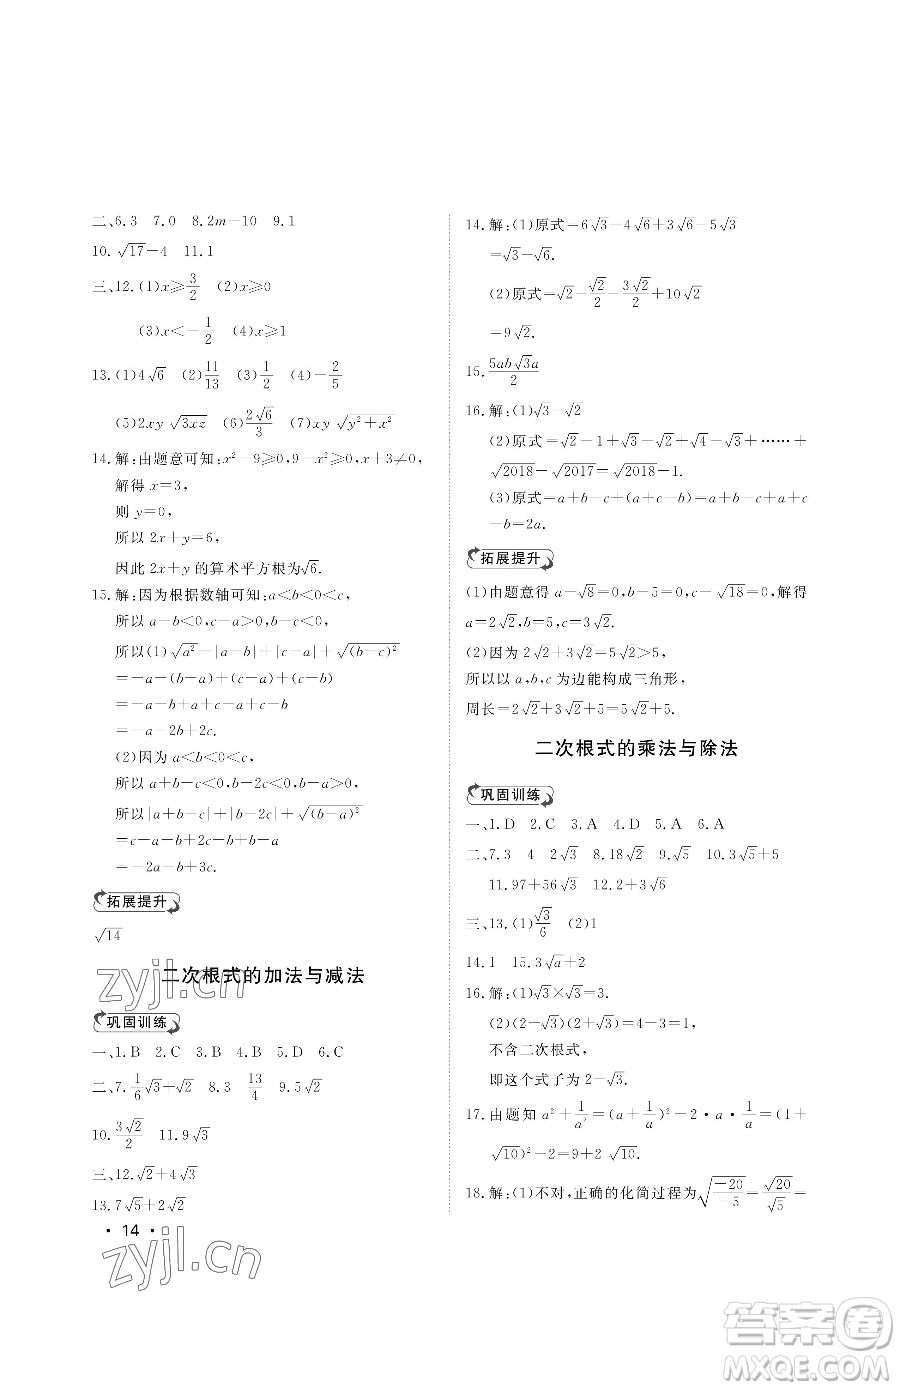 二、6.3 7.0 8.2m－10 9.1
10.√17－4 11.1
三、12.(1)x≥3/2 (2)x≥0
(3)x＜－1/2 (4)x≥1
13.(1)4√6 (2)11/13 (3)1/2 (4)－2/5
(5)2xy√3xz (6)2√6/3 (7)xy√(y²＋x²)
14.解:由题意可知:x²－9≥0,9－x²≥0,x＋3≠0,
解得x＝3,
则y＝0,
所以2x＋y＝6,
因此2x＋y的算术平方根为√6.
15.解:因为根据数轴可知:a＜b＜0＜c,
所以a－b＜0,c－a＞0,b－c＜0,
所以(1)√a²－|a－b|＋|c－a|＋√(b－c)²
＝－a＋(a－b)＋(c－a)＋(c－b)
＝－a－b＋a＋c－a＋c－b
＝－a－2b＋2c.
(2)因为a＜b＜0＜c,
所以a＋b－c＜0,b－2c＜0,b－a＞0,
所以|a＋b－c|＋|b－2c|＋√(b－a)²
＝c－a－b＋2c－b＋b－a
＝－2a－b＋3c.
拓展提升
√14
二次根式的加法与减法
巩固训练
一、1.B 2.C 3.B 4.C 5.D 6.C
二、7.1/6√3＋√2 8.3 13/4 9.5√2
10.3√2/2 11.9√3
三、12.√2＋4√3
13.7√5＋2√2
• 14 •
14.解:(1)原式＝6√3－4√6＋3√6－5√3
＝√3－√6.
(2)原式＝√2－√2/2－3√2/2＋10√2
＝9√2.
15.5ab√3a/2
16.解:(1)√3－√2
(2)原式＝√2－1＋√3－√2＋√4－√3＋……＋
√2018－√2017＝√2018－1.
(3)原式＝a＋b－c＋(a＋c－b)＝a＋b－c＋a＋c
－b＝2a.
拓展提升
(1)由题意得a－√8＝0,b－5＝0,c－√18＝0,解得
a＝2√2,b＝5,c＝3√2.
(2)因为2√2＋3√2＝5√2＞5,
所以以a,b,c为边能构成三角形,
周长＝2√2＋3√2＋5＝5√2＋5.
二次根式的乘法与除法
巩固训练
一、1.D 2.C 3.A 4.D 5.A 6.A
二、7.3 4 2√3 8.18√2 9.√5 10.3√5＋5
11.97＋56√3 12.2√3＋√6
三、13.(1)√3/6 (2)1
14.1 15.3√a＋2
16.解:(1)√3×√3＝3.
(2)(2－√3)(2＋√3)＝4－3＝1,
不含二次根式,
即这个式子为2－√3.
17.由题知a²＋1/a²＝(a＋1/a)²－2•a•1/a＝(1＋
√10)²－2＝9＋2√10.
18.解:(1)不对,正确的化简过程为√(－20/－5)＝√20/√5＝
zyjl.cn
zyjl.cn
答案圈
MXQE.COM